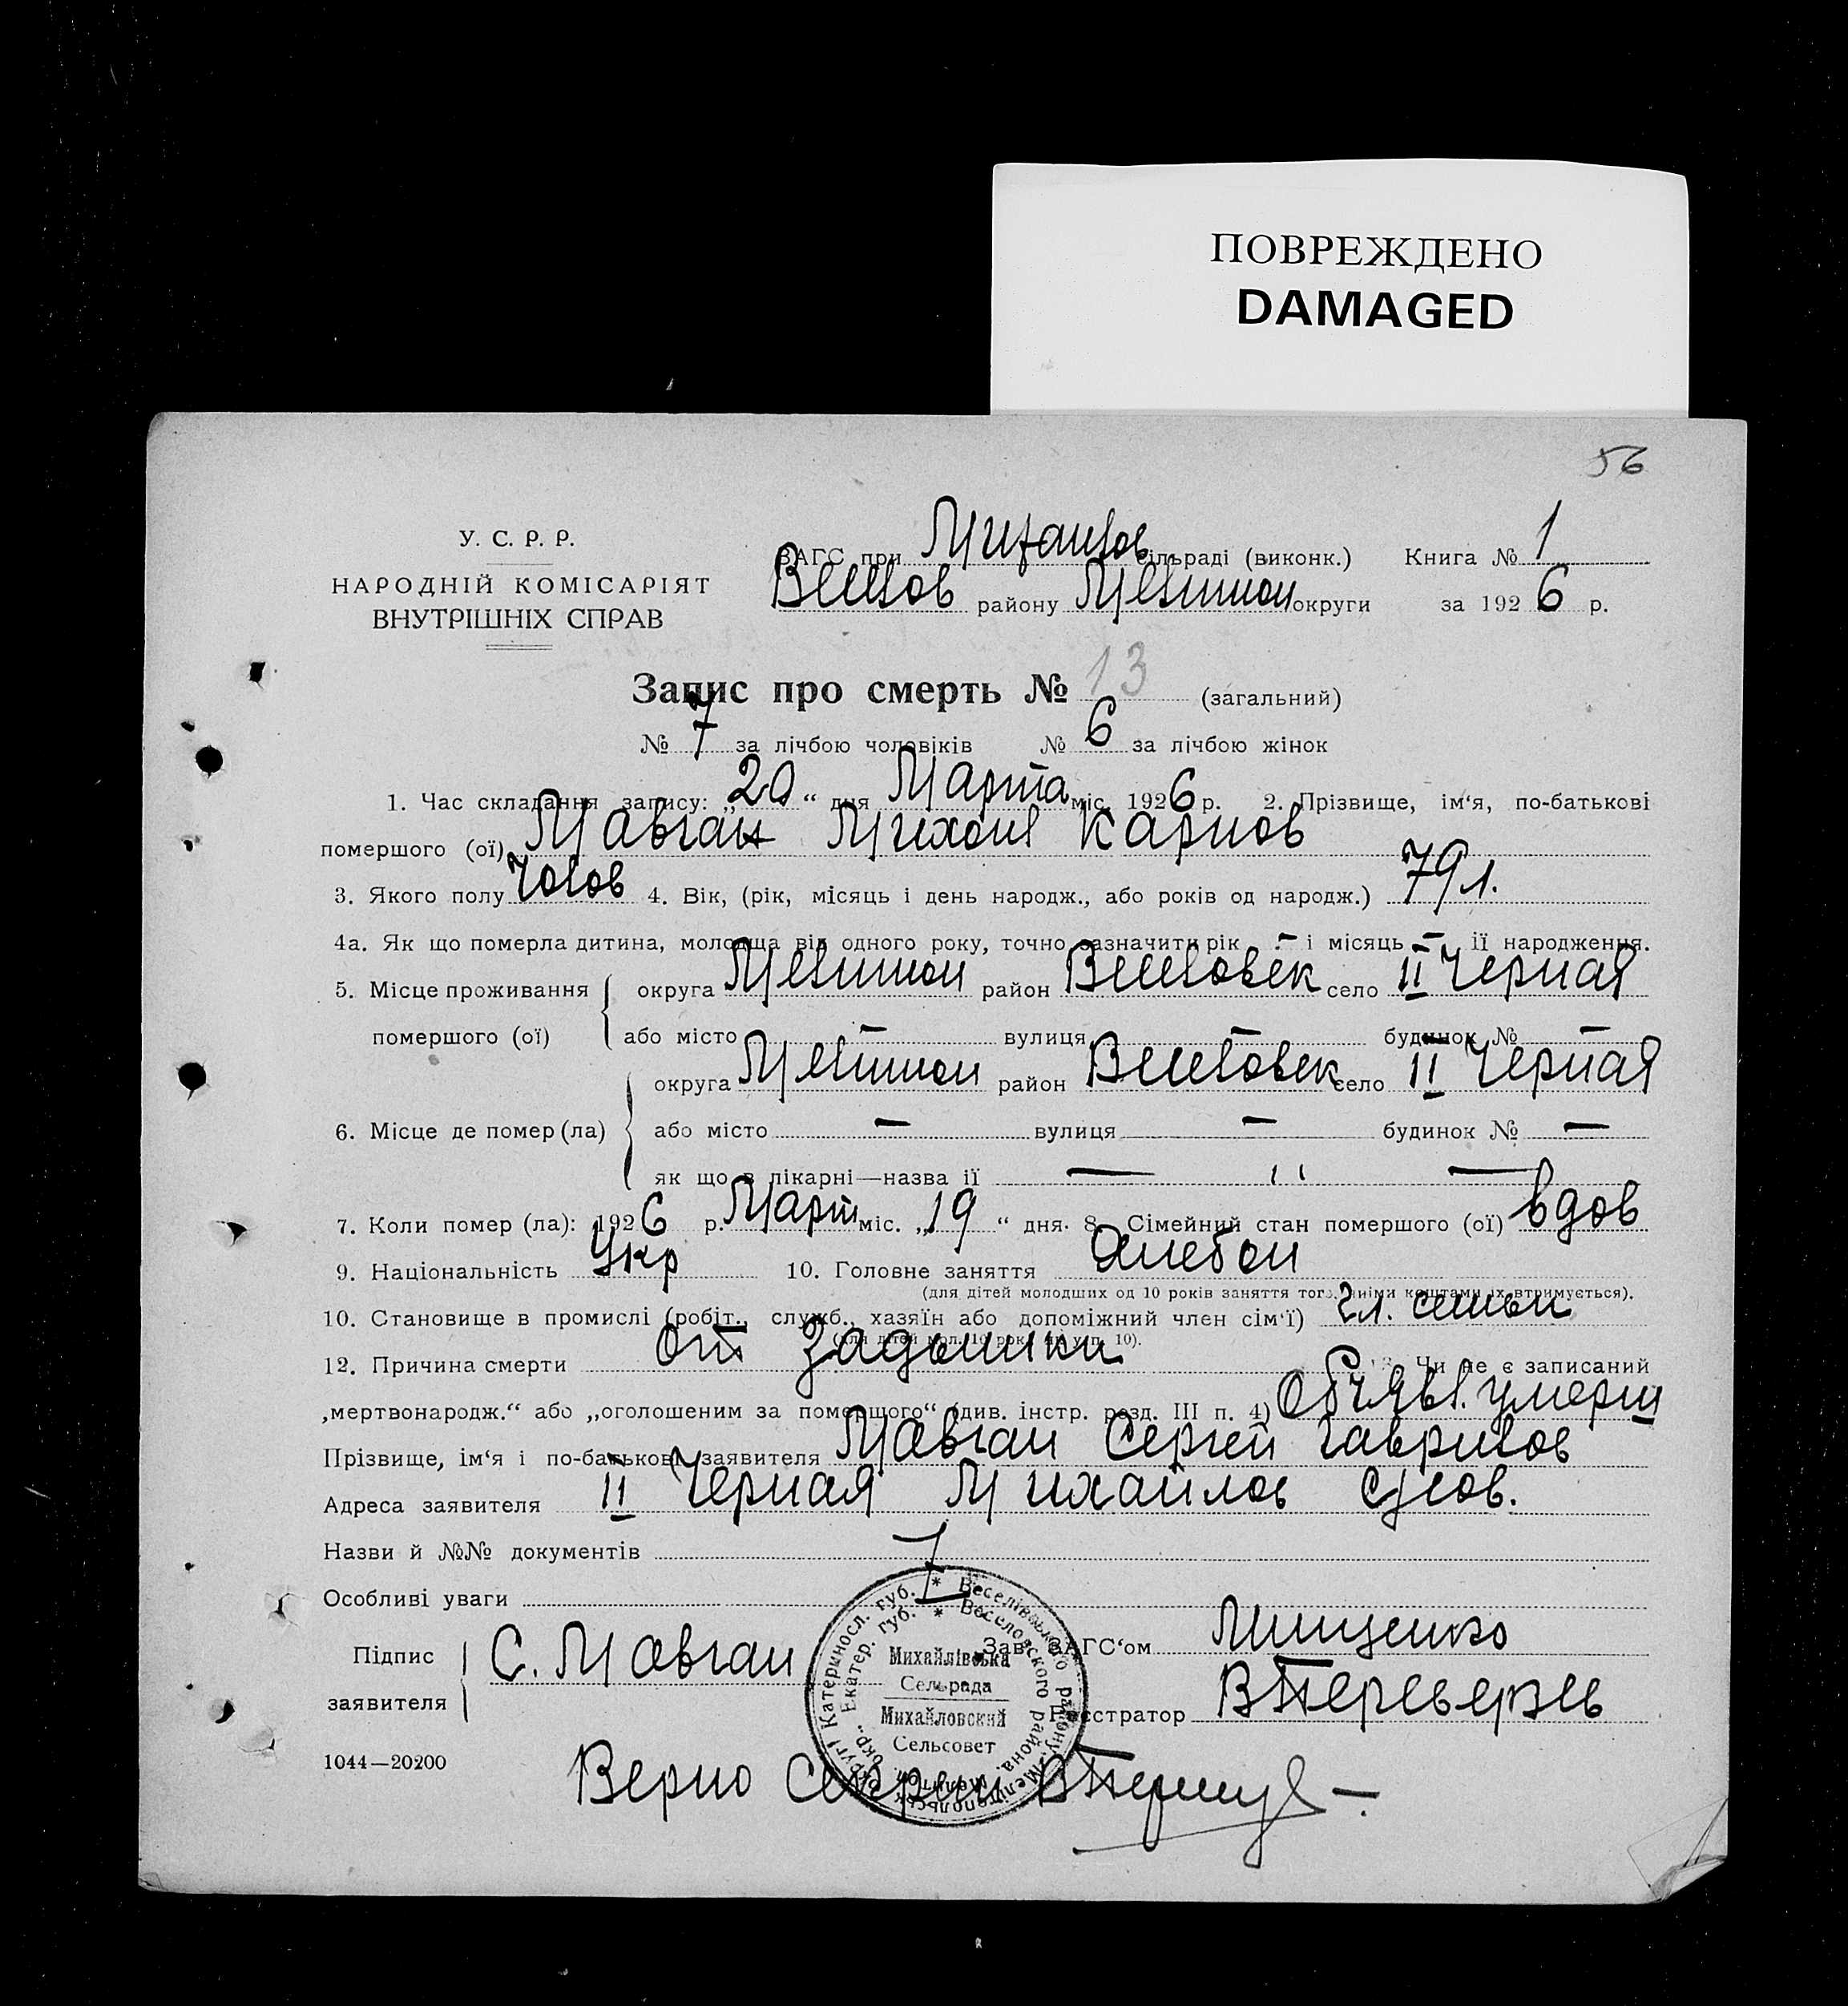 ПОВРЕЖДЕНО
DAMAGED
56
У. С. Р. Р.
НАРОДНІЙ КОМІСАРІЯТ
ВНУТРІШНІХ СПРАВ
ЗАГС при Михайлов сільраді (виконк.) Книга № 1
Веселов району Мелитоп округи за 1926 р.
Запис про смерть № 13 (загальний)
№ 7 за лічбою чоловіків № 6 за лічбою жінок
1. Час складання запису: „20“ дня Марта міс. 1926 р. 2. Прізвище, ім‘я, по-батькові
помершого (ої) Мавган Михаил Карпов
3. Якого полу Чолов 4. Вік, (рік, місяць і день народж., або років од народж.) 79 л.
4а. Як що померла дитина, молодща від одного року, точно зазначити рік – і місяць – її народження.
5. Місце проживання округа Мелитоп район Веселовск село II Черная
помершого (ої) або місто — вулиця — будинок № —
округа Мелитоп район Веселовск село II Черная
6. Місце де помер (ла) або місто — вулиця — будинок № —
як що в лікарні—назва її — „ —
7. Коли помер (ла): 1926 р. Март міс. „19“ дня. 8. Сімейний стан помершого (ої) вдов
9. Національність Укр 10. Головне заняття Хлебоп
(для дітей молодших од 10 років заняття того, чиїми коштами їх втримується).
10. Становище в промислі (робіт., служб., хазяїн або допоміжний член сім‘ї) Гл. семьи
(для дітей мол. 10 рок. як у п. 10).
12. Причина смерти От задышки 13. Чи не є записаний
„мертвонародж.“ або „оголошеним за померщого“ (див. інстр. розд. III п. 4) Объявл. умерш
Прізвище, ім‘я і по-батькові заявителя Мавган Сергей Гаврилов
Адреса заявителя II Черная Михайлов с/сов.
Назви й №№ документів
Особливі уваги
Підпис
заявителя
С. Мавган
Зав. ЗАГС‘ом Мищенко
Реєстратор В Переверзев
Катериносл. губ. * Веселівського району, Мелітопольськ. округ
Екатер. губ. * Веселовского района, Мелитоп. окр.
Михайлівська
Сельрада
Михайловский
Сельсовет
1044—20200
Верно